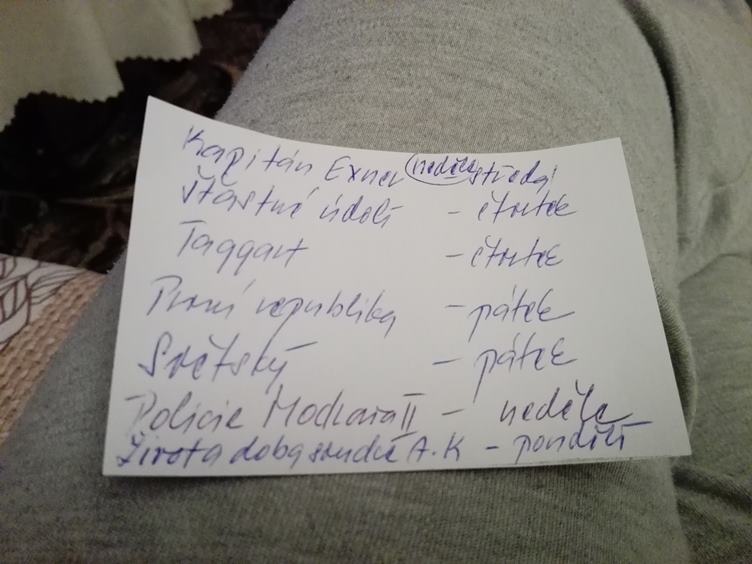 Kapitán Exner neděle středa
Šťastné údolí - čtvrtek
Taggart - čtvrtek
První republika - pátek
Světský - pátek
Policie Modrava II - neděle
Života doba soudce A.K - pondělí